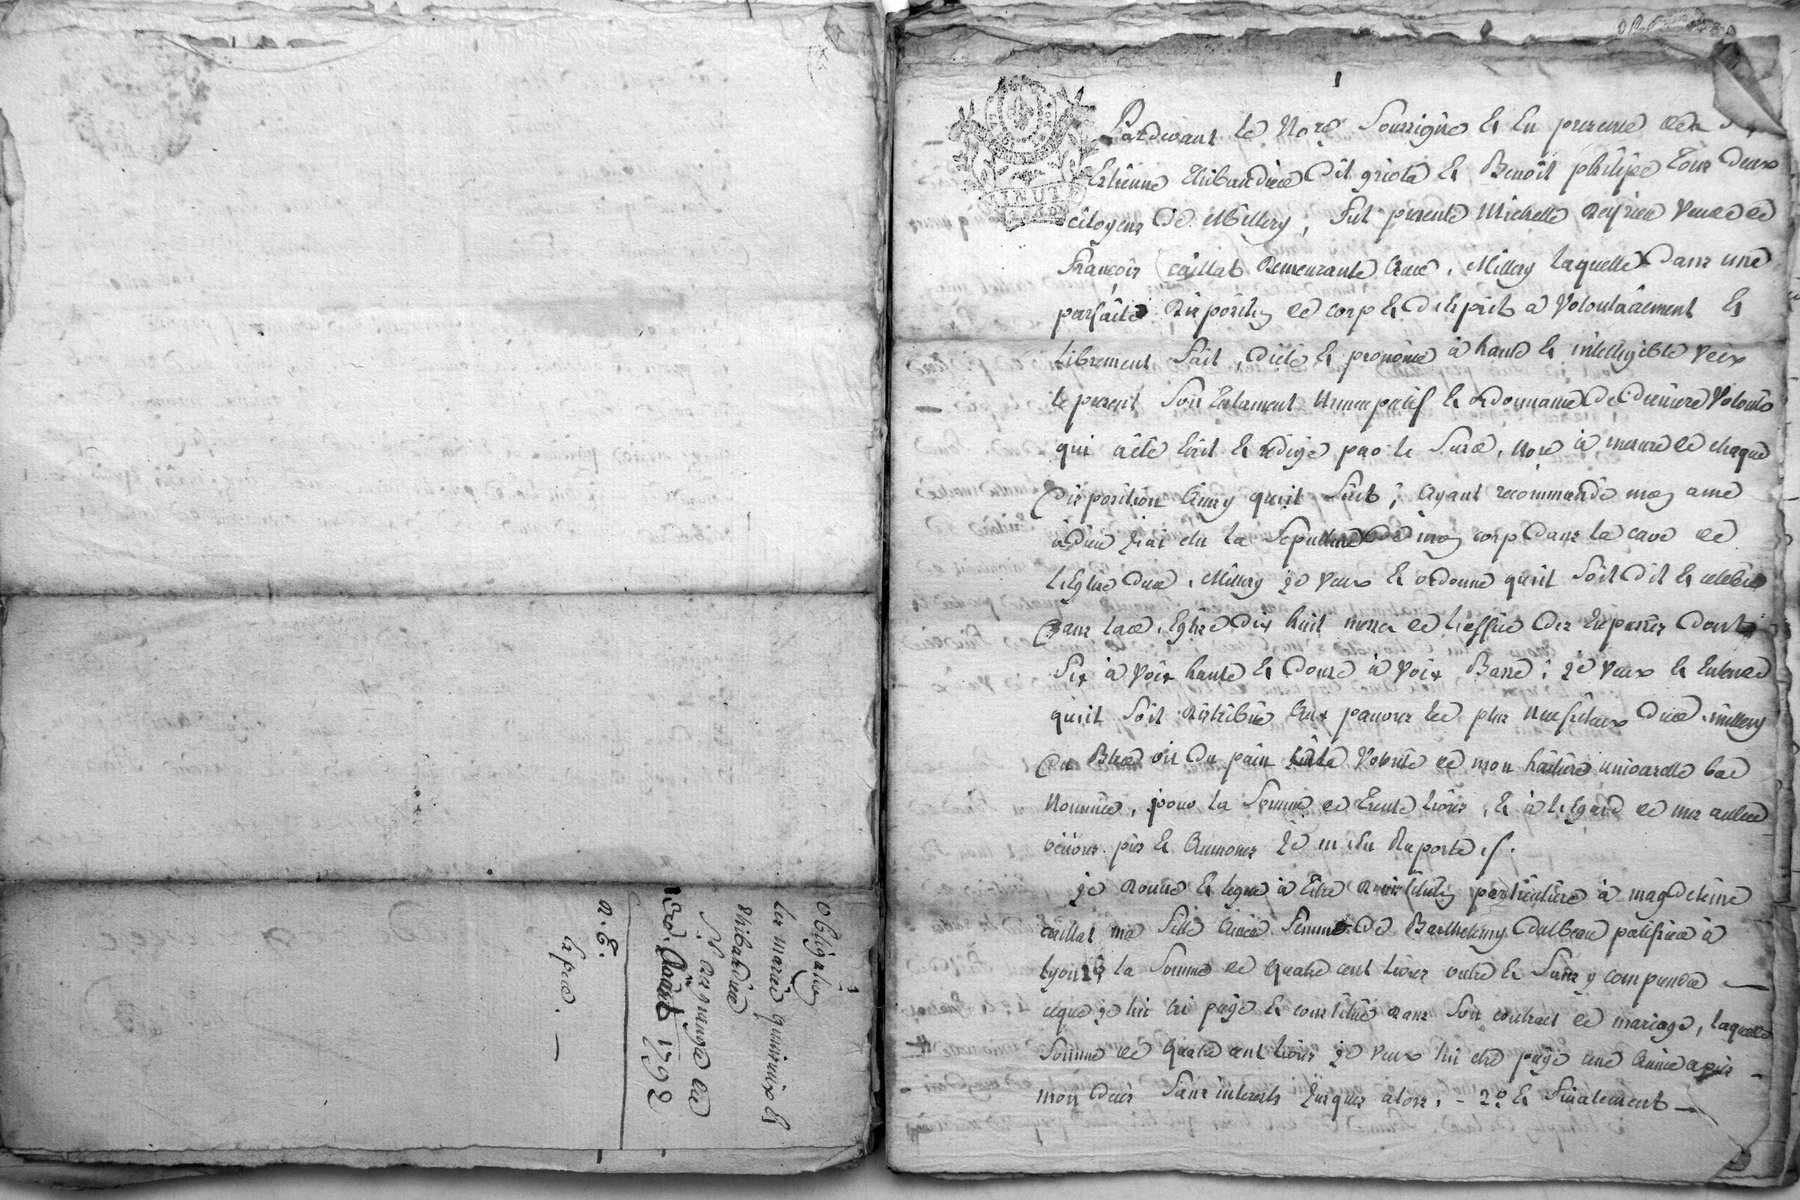 obligaôn
les mariés quinivier &
thibaudier
St. arpianges de
13e. Aoust 1792
a. E.
Expié.
1
Pardevant le Nore Soussigné & En presence de
Estienne thibaudier dit griola & Benoit philipe tous deux
citoyens de Millery, fut presente Michelle Reyrieu veuve de
François Caillat demeurante aud. Millery laquelle dans une
parfaite dispositoñ de corp & desprit a volontairement &
librement fait, dicté & prononcé à haute & intelligible voix
le present son testament nuncupatif & ordonnance de derniere volonté
qui a été écrit & rédigé par le sused. Nore à mesure de chaque
disposition Ainsy quil suit ; Ayant recommandé moñ ame
à dieu J'ai élu la Sepulture de moñ corp dans la cave de
l'Eglise dud. Millery je veux & ordonne quil soit dit & celebré
dans lad. Eglise dix huit messes de l'office des trépassés dont
six à voix haute & douze à voix Basse : je veux & Entend
quil soit distribué Aux pauvres les plus necessiteux dud. millery
du Bled ou du pain à la volonté de mon héritiere universelle bas
nommée, pour la somme de trente livres, & à l'Egard de mes autres
œuvres pies & Aumones je m'en Raporte f.
je donne & legue à titre d'institutoñ particuliere à magdeleine
Caillat ma fille Ainée femme de Barthelemy Dalbeau patissier à
Lyon la somme de quatre cent livres outre & sans y comprendre
ceque je lui ai payé & constitué dans son contract de mariage, laquelle
somme de quatre cent livres je veux lui etre payé une Année après
mon décès sans interets jusques alors. - 2o & finalement